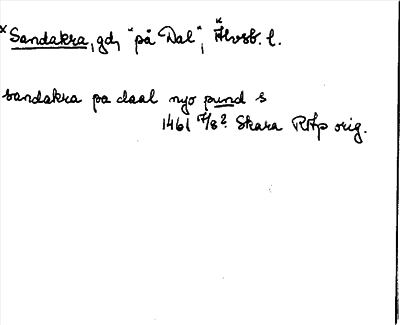 *Sandakra, gd, "på Dal", *Älvsb. l.
sandakra pa daal nyo pund s
1461 17/8? Skara RAp orig.